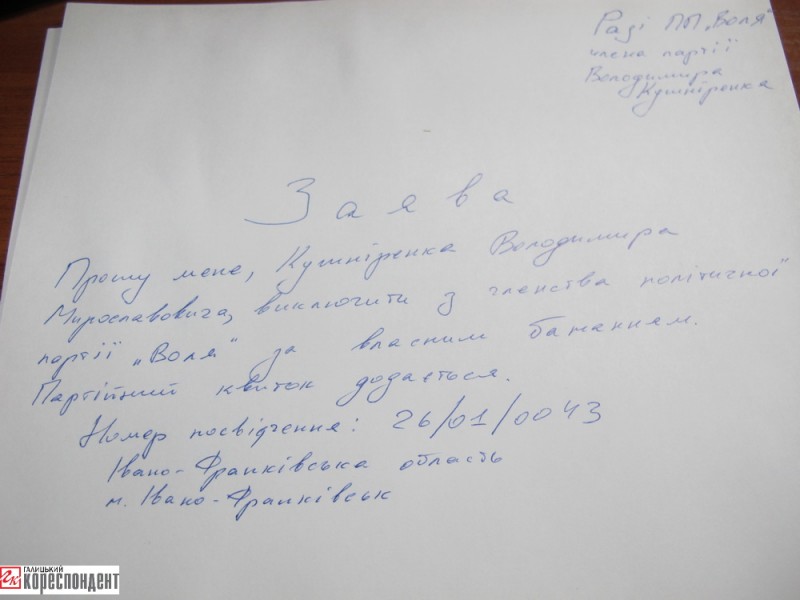 Раді ПП „Воля"
члена партії
Володимира
Кушніренка
Заява
Прошу мене, Кушніренка Володимира
Мирославовича, виключити з членства політичної
партії „Воля" за власним бажанням.
Партійний квиток додається.
Номер посвідчення: 26/01/0043
Івано-Франківська область
м. Івано-Франківськ
ГАЛИЦЬКИЙ
КОРЕСПОНДЕНТ